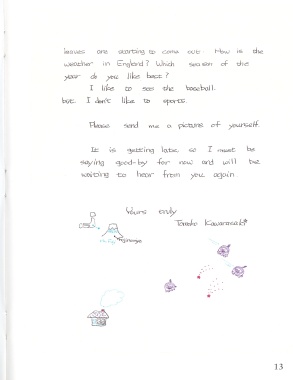 leaves are starting to come out. How is the
weather in England? Which season of the
year do you like best?
I like to see the baseball.
but I don't like to sports.
Please send me a picture of yourself.
It is getting late so I must be
saying good-by for now and will be
waiting to hear from you again.
Yours truly
Tomoko Kawarasaki
13